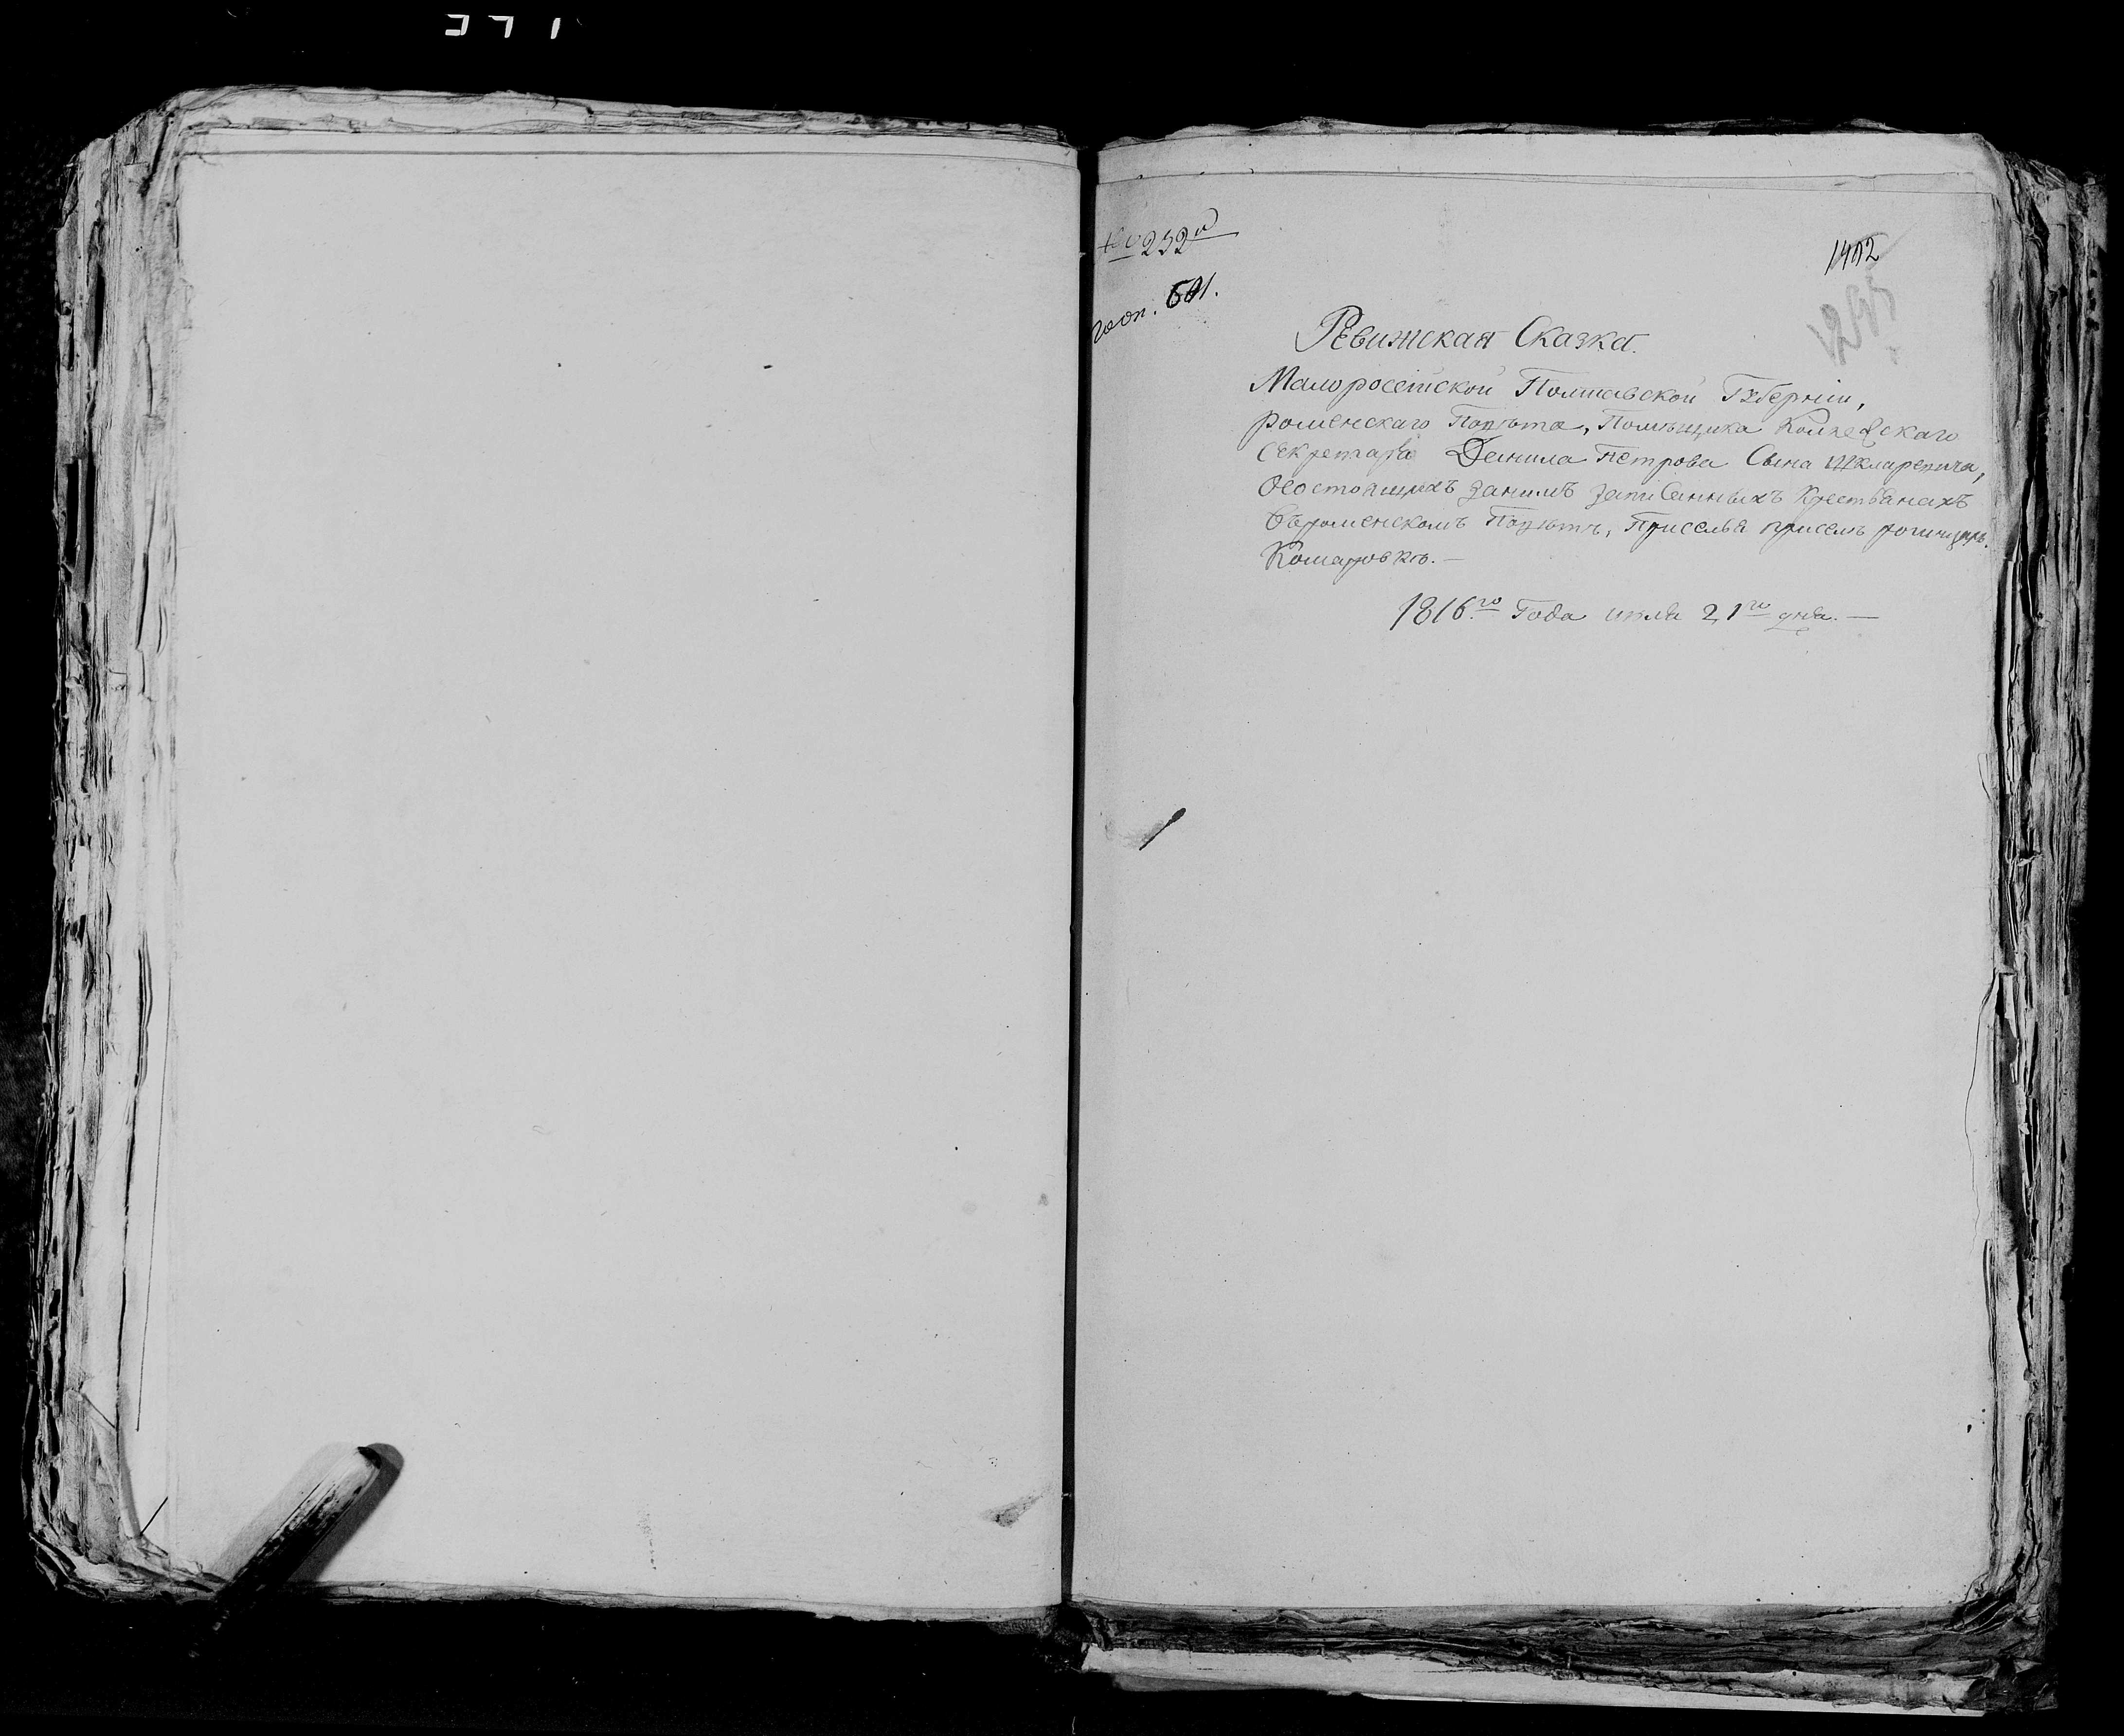 № 232й
по оп. 601.
1402
1295
Ревижская Сказка.
Малоросейской Полтавской Губернии,
роменского Повѣта, Помѣщика Колѣжскаго
Секретаря Данила Петрова Сына Шкляревича,
Осостоящихъ занимъ записанныхъ Крестьянахъ
Въроменскомъ Повѣтѣ, Приселья присемъ
Комаровкѣ. —
1816го Года июля 21го дня. —